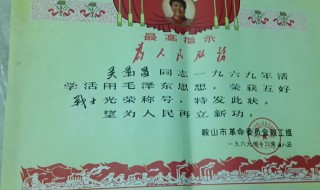 最高指示
为人民服务
吴 昌同志一九六九年活
学活用毛泽东思想，荣获五好
战士光荣称号，特发此状。
望为人民再立新功。
鞍山市革命委员会 工组
一九六九年十二月 八日